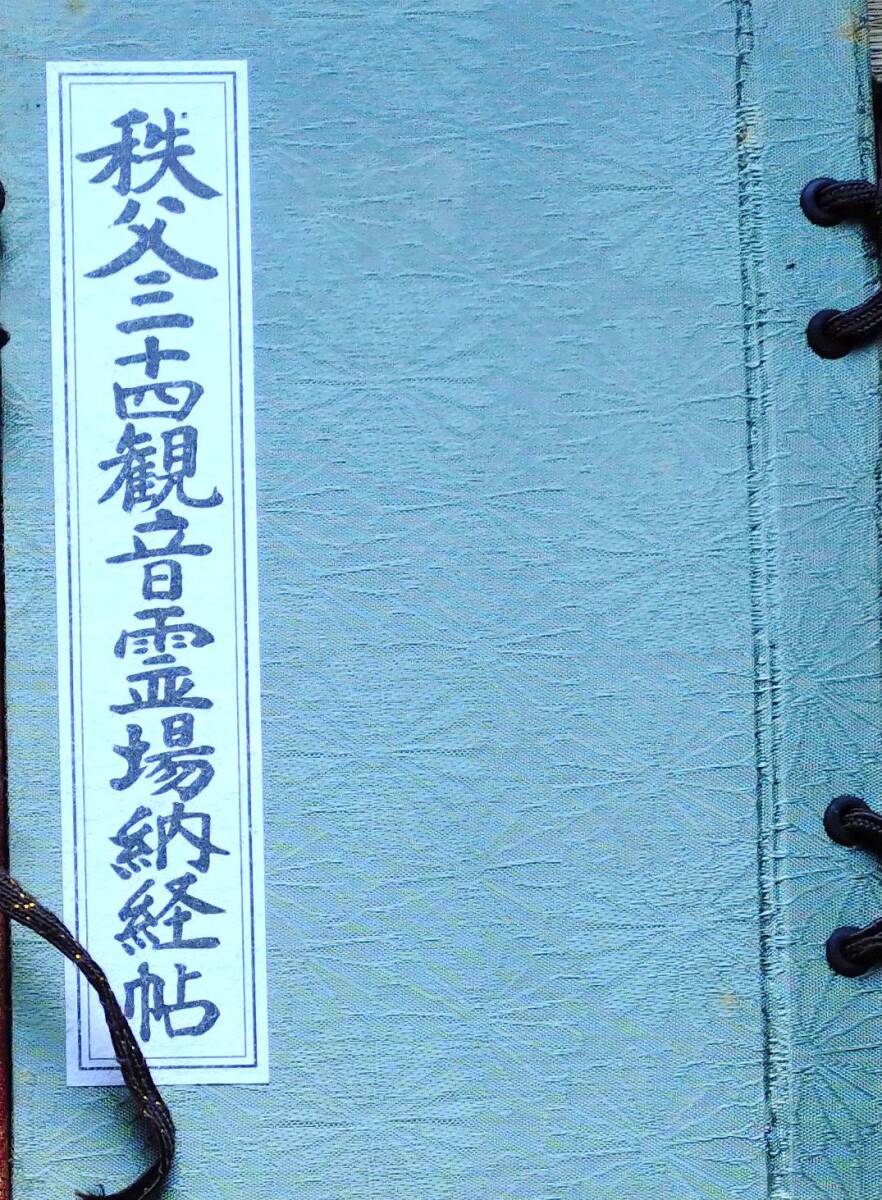 秩父三十四観音霊場納経帖